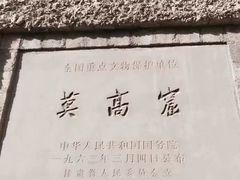 全国重点文物保护单位
莫高窟
中华人民共和国国务院
一九六一年三月四日公布
甘肃省人民委员会立